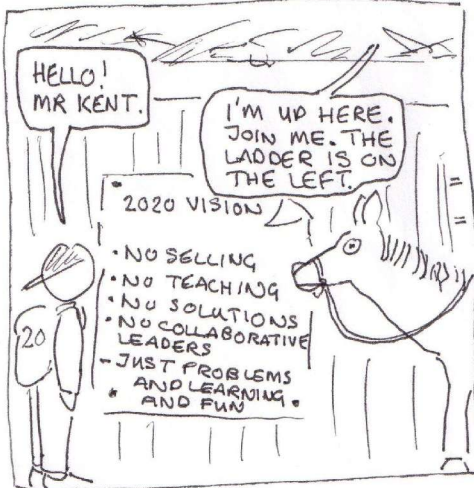 HELLO!
MR KENT.
I'M UP HERE.
JOIN ME. THE
LADDER IS ON
THE LEFT.
2020 VISION
• NO SELLING
• NO TEACHING
• NO SOLUTIONS
• NO COLLABORATIVE
LEADERS
- JUST PROBLEMS
AND LEARNING
• AND FUN •
20